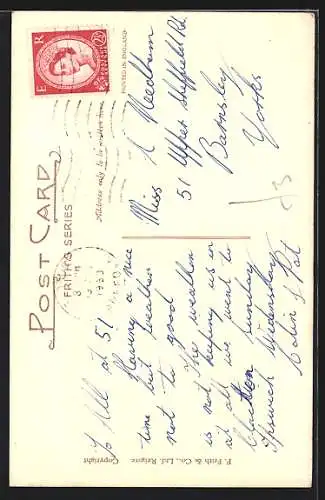 POST CARD
FRITH'S SERIES
Address only to be written here
PRINTED IN ENGLAND
E R
2½D
1953
To All at 51
Having a nice
time but weather
not to good
is not The weather
not keeping us in
at all we went to
Clacton Sunday
Ipswich Wednesday
Colin & Pat
Miss A Needham
51 Upper Sheffield Rd
Barnsley
Yorks
F. Frith & Co., Ltd. Reigate
Copyright